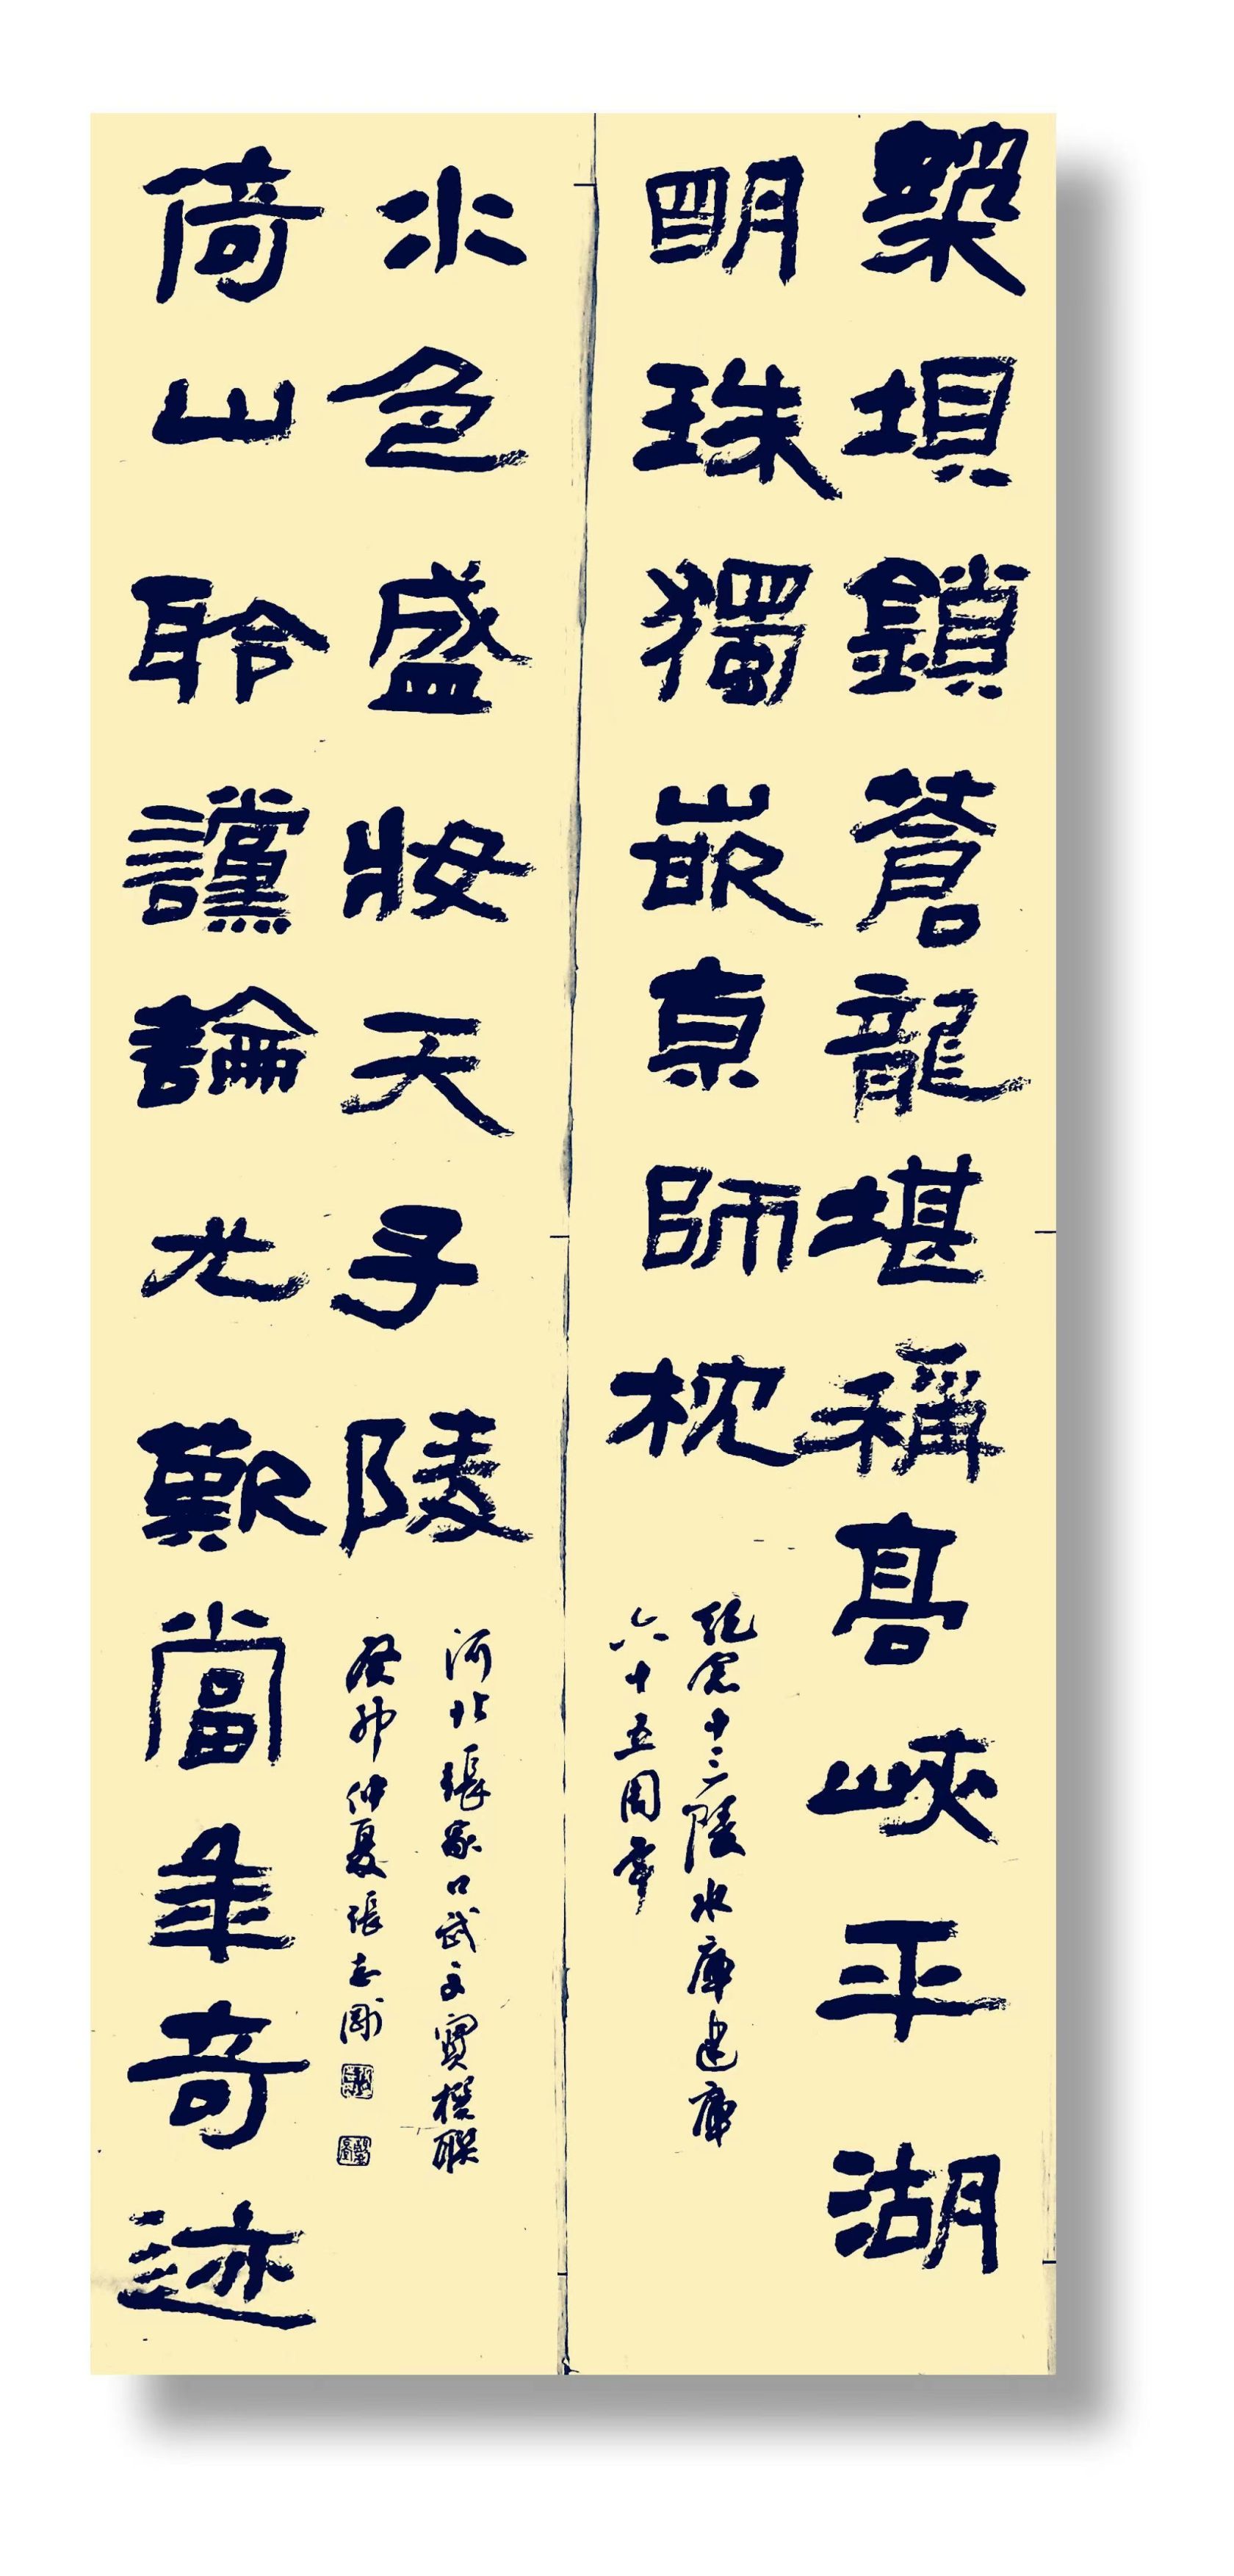 築垻鎖蒼龍堪稱高峽平湖
明珠獨嵌京師枕
紀念十三陵水庫建庫
六十五周年
倚山聆讜論尤歎當年奇迹
水色盛妝天子陵
河北張家口武文寶撰聯
癸卯仲夏張志剛